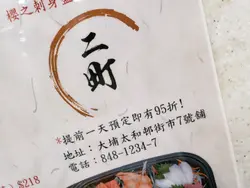 櫻之刺身盛
二町
*提前一天預定即有95折!
地址:大埔太和邨街市7號舖
電話:848-1234-7
$218